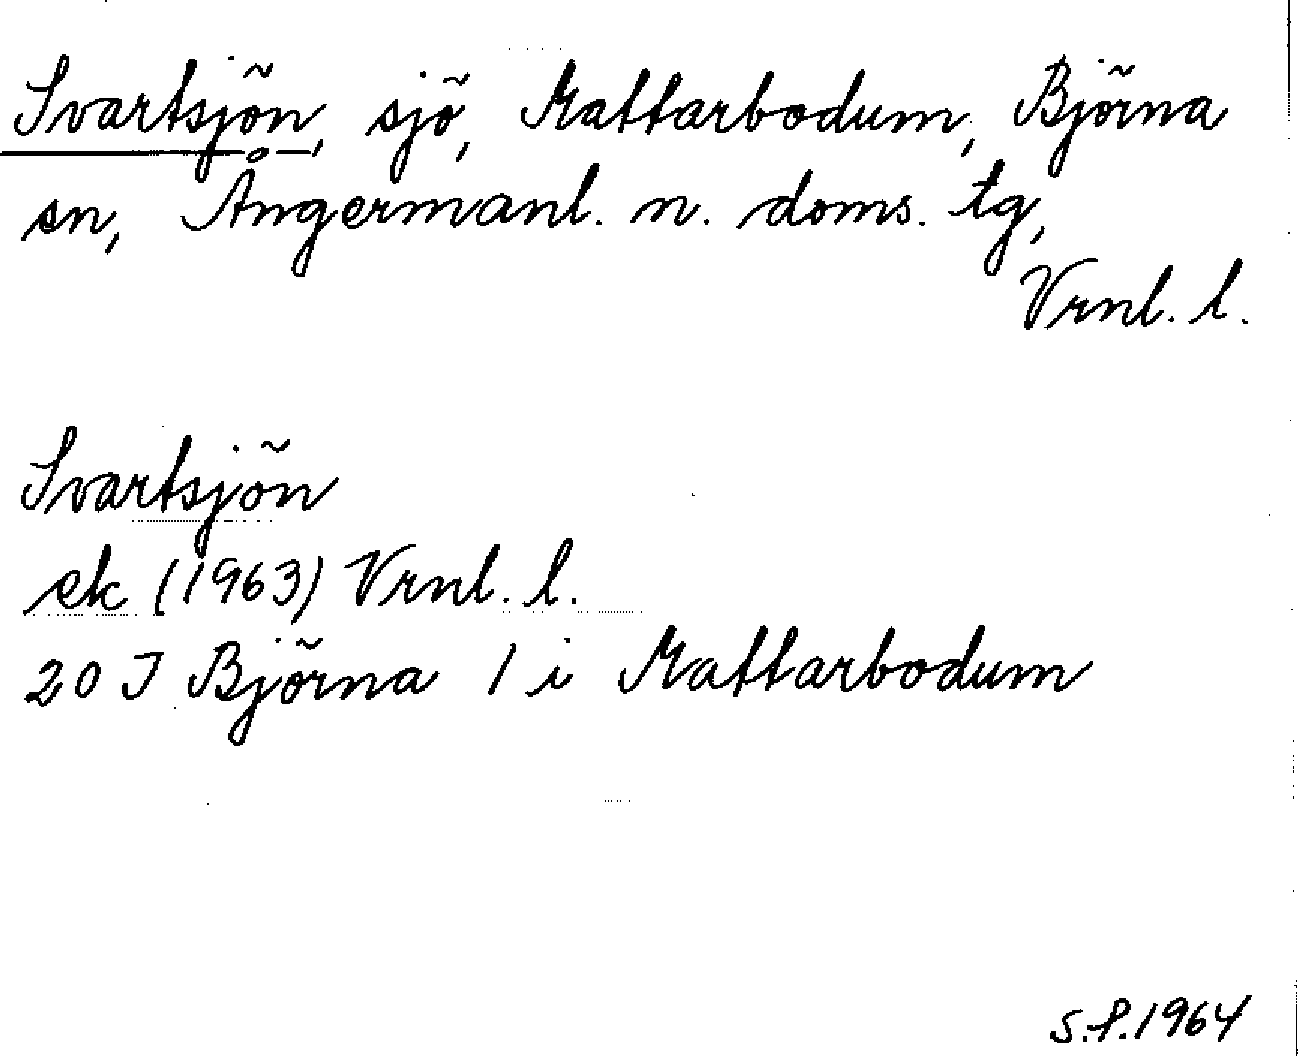 Svartsjön, sjö, Mattarbodum, Björna
sn, Ångermanl. n. doms. tg,
Vrnl. l.
Svartsjön
ek (1963) Vrnl. l.
20 J Björna 1 i Mattarbodum
S.P. 1964